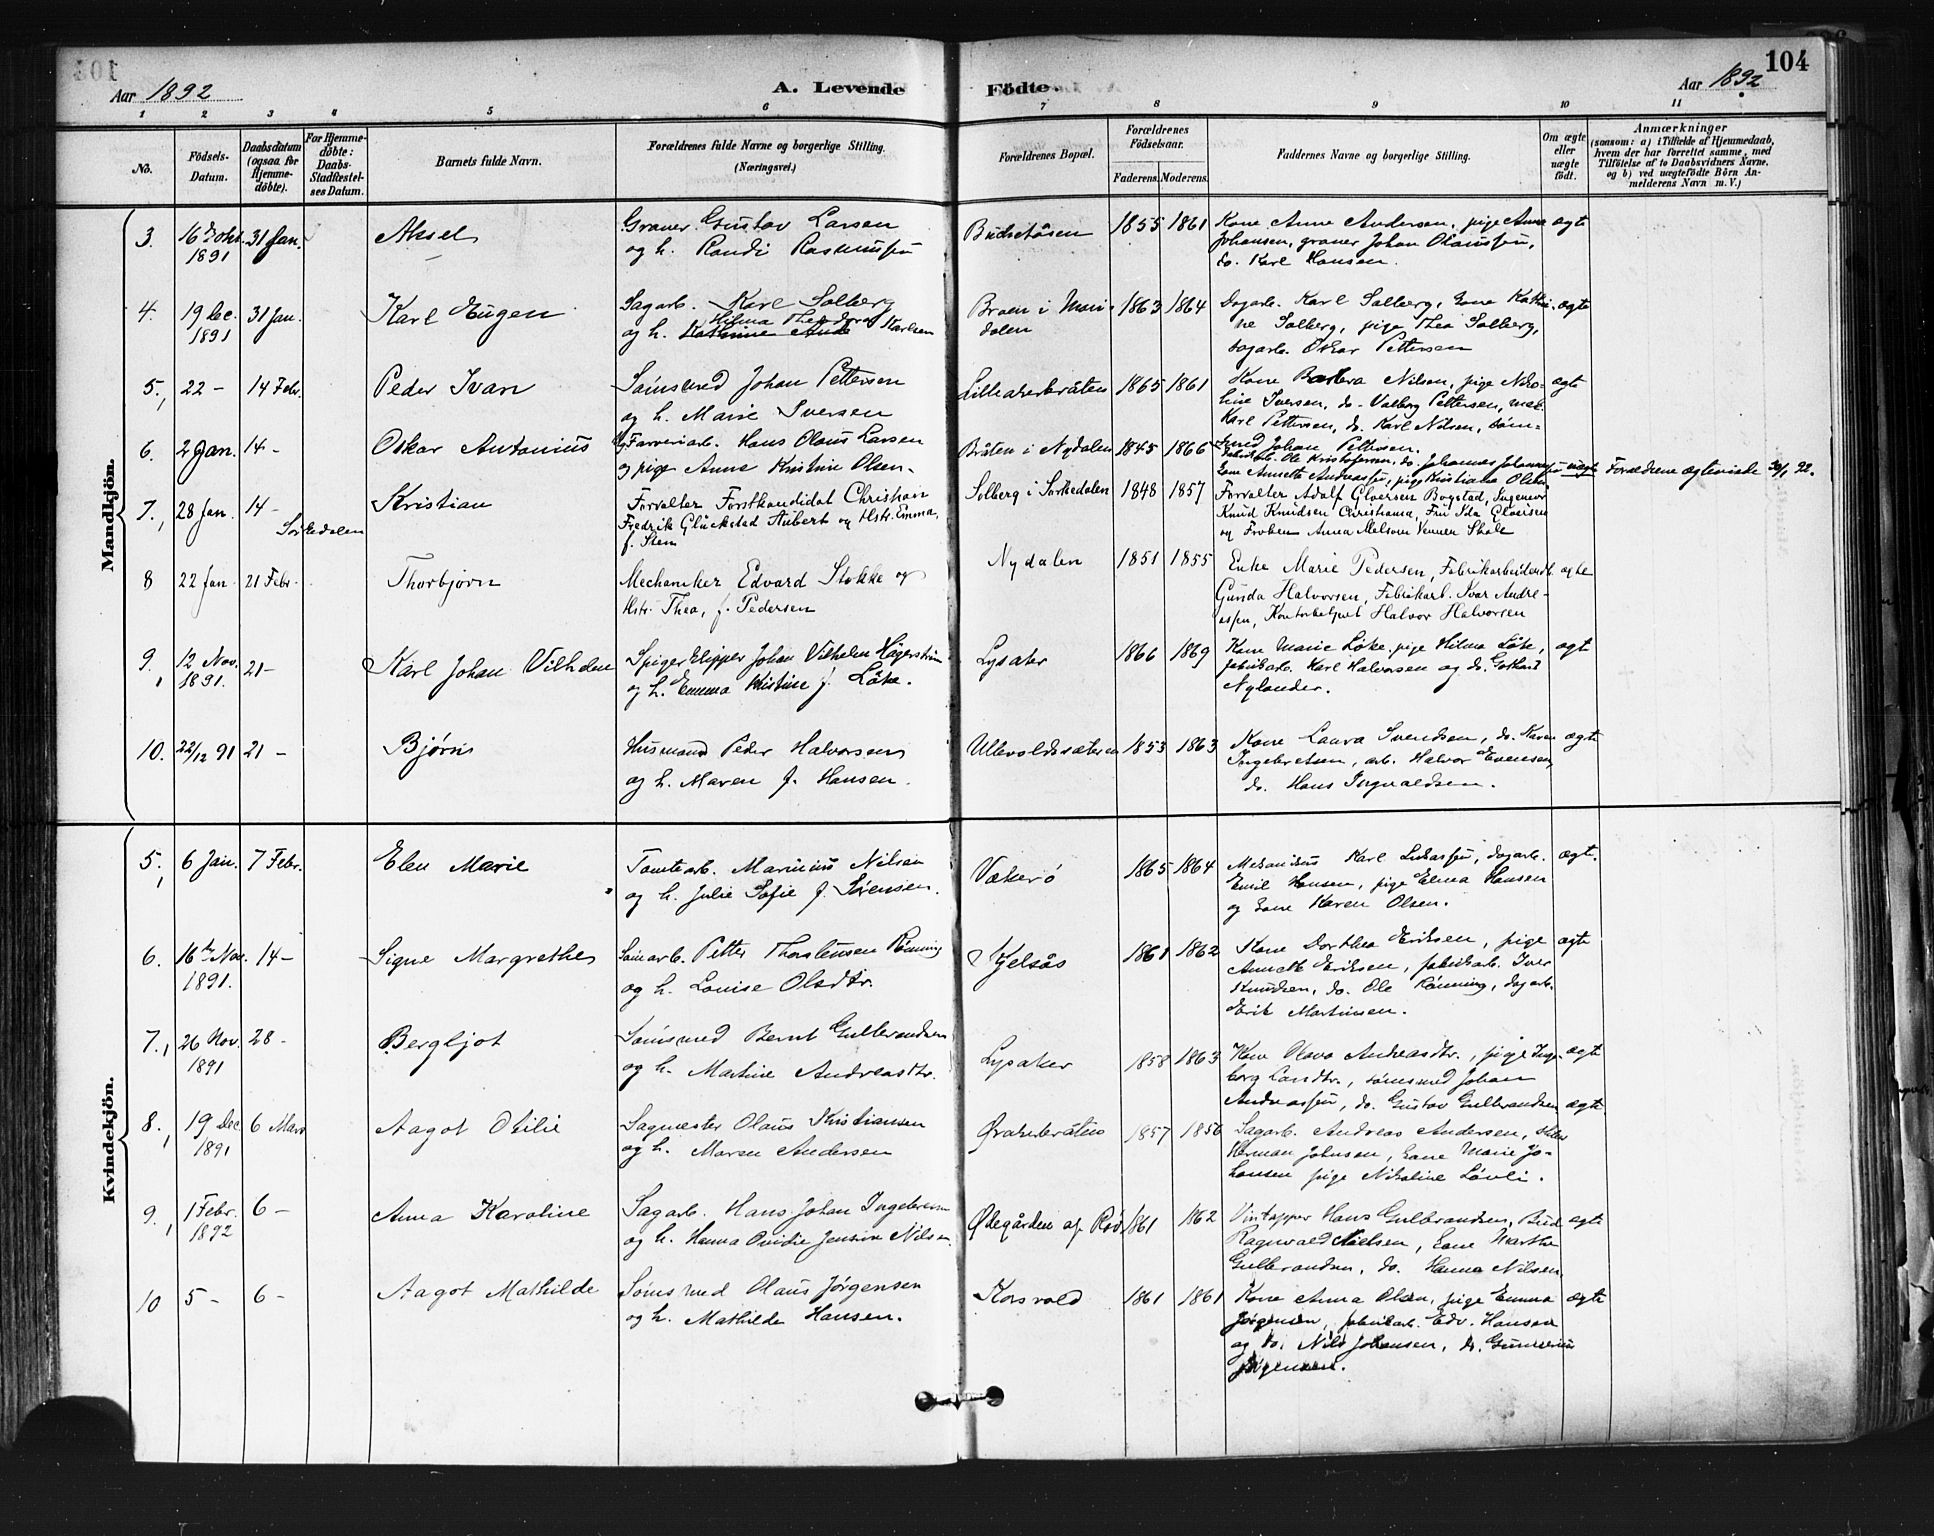 104
Aar 1892
A. Levende Födte.
Aar 1892
1 2 3 4 5 6 7 8 9 10 11
No.
Födsels-
Datum.
Daabsdatum
(ogsaa for
Hjemme-
döbte).
For Hjemme-
döbte:
Daabs-
Stadfæstel-
ses Datum.
Barnets fulde Navn.
Forældrenes fulde Navne og borgerlige Stilling.
(Næringsvei.)
Forældrenes Bopæl.
Forældrenes
Födselsaar.
Faderens. Moderens.
Faddernes Navne og borgerlige Stilling.
Om ægte
eller
uægte
født.
Anmærkninger
(saasom: a) i Tilfælde af Hjemmedaab,
hvem der har forrettet samme, med
Tilföielse af to Daabsvidners Navne,
og b) ved uægtefödte Börn An-
melderens Navn m. V.)
Mandkjön.
3. 16 Okt. 1891 31 Jan. Aksel
Graver Gustav Larsen
og h. Randi Rasmussen
1855 1861
Kone Anne Andersen, pige Anna
Johansen, graver Johan Olaussen,
do. Karl Hansen.
ægte
4. 19 Dec. 1891 31 Jan. Karl Eugen
Sagarb. Karl Solberg
Hilma Theodora
og h. Karlsen
Braten i Mari-
dalen
1863 1864
Dagarb. Karl Solberg, Kone Kathri-
ne Solberg, pige Thea Solberg,
dagarb. Oskar Pettersen
ægte
5. 22 - 14 Febr. Peder Ivan
Sømsmed Johan Pettersen
og h. Marie Iversen
Lilleakerbråten
1865 1861
Kone Barbra Nilsen, pige Niko-
line Iversen, do. Valborg Pettersen,
Karl Pettersen, do. Karl Nilsen, søm-
smed Johan Pettersen.
ægte
6. 2 Jan. 14 - Oskar Antonius
Farveriarb. Hans Olaus Larsen
og pige Anna Kristine Olsen.
Bråten i Nydalen
1845 1866
Fabrikarb. Ole Kristofersen, do. Johannes Johannessen
Kone Annette Andreassen, pige Kristiane Olsen
uægte
Forældrene ægteviede
7. 28 Jan. 14 - Sørkedalen
Kristian
Forvalter Forstkandidat Christian
Fredrik Glückstad Aubert og Hstr. Emma,
f. Steen
Solberg i Sørkedalen
1848 1857
Forvalter Adolf Gløersen Bogstad, Ingeniør
Knud Knudsen Christiania, Fru Ida Gløersen
og Frøken Anna
8 22 Jan 21 Febr. Thorbjørn
Mechaniker Edvard Stokke og
Hstr. Thea, f. Pedersen
Nydalen
1851 1855
Enke Marie Pedersen, Fabrikarbeidersk.
Gunda Halvorsen, Fabrikarb. Ivar Andre-
assen, Kontorbetjent Halvor Halvorsen
ægte
9. 12 Nov. 1891. 21 - Karl Johan Vilhelm
Spigerklipper Johan Vilhelm Hägerström
og h. Emma Kristine f. Løke.
Lysaker
1866 1869
Kone Marie Løke, pige Hilma Løke,
fabrikarb. Karl Halvorsen og do. Gothard
Nylander.
ægt
10. 22/12 91 21 - Bjørn
Husmand Peder Halvorsen
og h. Maren f. Hansen.
Ullevoldssæteren
1853 1863
Kone Laura Svendsen, do. Karen
Ingebretsen, arb. Halvor Evensen,
do. Hans Ingvaldsen.
ægte
Kvindekjön.
5. 6 Jan. 7 Febr. Elen Marie
Tomtearb. Marinius Nilsen
og h. Julie Sofie f. Sørensen.
Vækerø
1865 1864
Karl Lukassen, dagarb.
Emil Hansen, pige Elma Hansen
og Kone Karen Olsen.
ægt.
6. 16 Nov. 1891. 14 - Signe Margrethe
Sømarb. Petter Thorstensen Rønning
og h. Louise Olsdtr.
Kjelsås
1861 1862
Kone Dorthea Eriksen, pige
Annette Eriksen, fabrikarb. Iver
Knudsen, do. Ole Rønning, dagarb.
Erik Martinsen.
ægte
7. 26 Nov. 1891 28 - Bergljot
Sømsmed Bernt Gulbrandsen
og h. Martine Andreasdtr.
Lysaker
1858 1863
Kone Olava Andreasdtr., pige Inge-
borg Larsdtr., sømsmed Johan
Andreassen, do. Gustav Gulbrandsen
ægte
8. 19 Dec 1891 6 Mars Aagot Otilie
Sagmester Olaus Kristiansen
og h. Maren Andersen
Øvakerbråten
1857 1856
Sagarb. Andreas Andersen,
Herman Johnsen, Kone Marie Jo-
hansen pige Nikoline Løvli.
ægte
9. 1 Febr. 1892 6 - Anna Karoline
Sagarb. Hans Johan Ingebretsen
og h. Hanna Ovidie Jensine Nilsen.
Ødegården af Røa
1861 1862
Vintapper Hans Gulbrandsen, Bud
Ragnvald Nielsen, Kone Marthe
Gulbrandsen, do. Hanna Nilsen.
ægte
10 5 - 6 - Aagot Mathilde
Sømsmed Olaus Jørgensen
og h. Mathilde Hansen.
Korsvold
1861 1861
Kone Anna Olsen, pige Emma
Jørgensen, fabrikarb. Edv. Hansen
og do. Nils Johansen, do. Gunerius
Jørgensen.
ægte